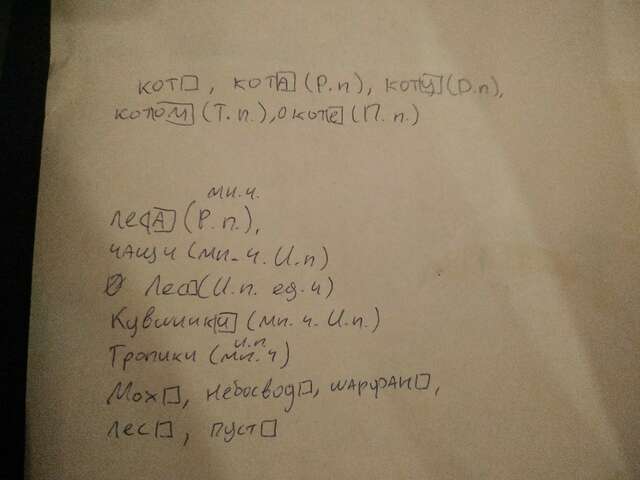 кот□, кота (Р.п), коту (D.п),
котом (Т.п.), о коте (П.п.)
мн.ч.
леса (Р.п.),
чащи (мн.ч. И.п)
О лес□ (И.п. ед.ч)
Кувшинки (мн.ч. И.п.)
и.п
Тропики (мн.ч)
Мох□, небосвод□, шарфан□,
лес□, пуст□